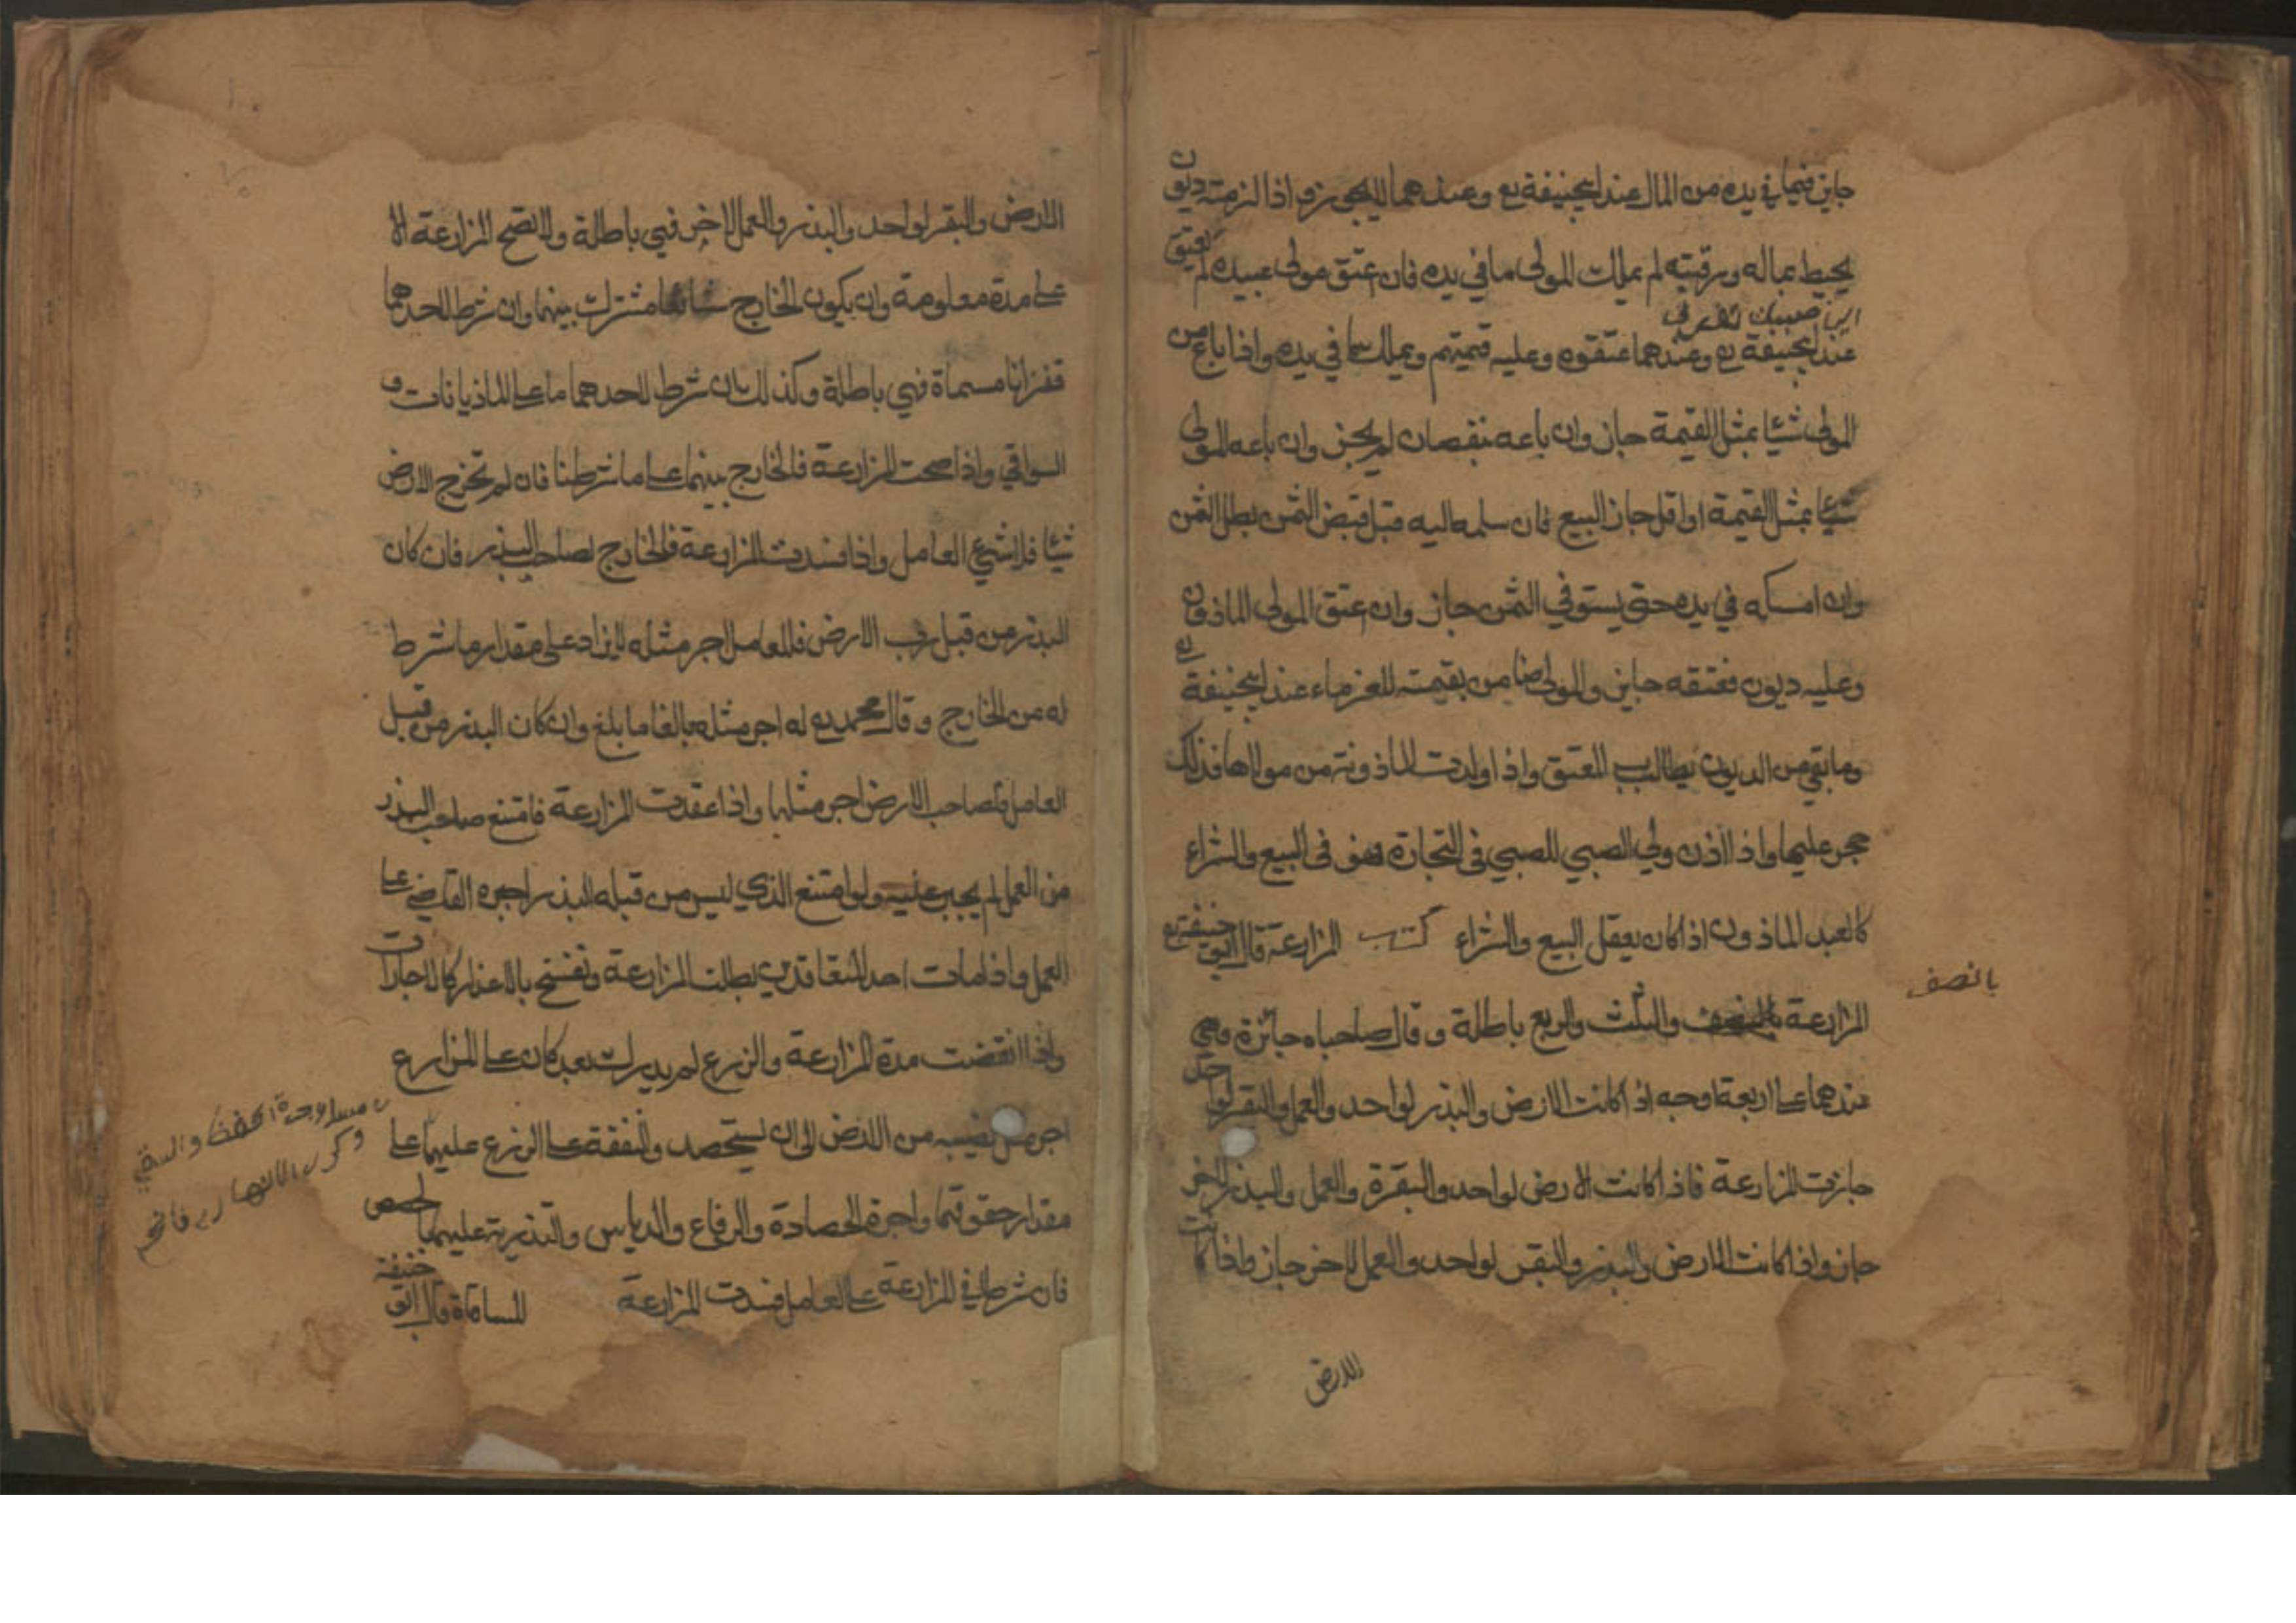 جايز فيما في يده من المال عند ابيحنيفة رح وعندهما لا يجوز واذا لزمته ديون
يحيط بماله ورقبته لم يملك المولى ما في يده فان اعتق مولى عبيده لم يعتق
عند ابيحنيفة رح وعندهما عتقوه وعليه قيمتهم ويملك ما في يده واذا باع من
المولى شيئا بمثل القيمة جاز وان باعه بنقصان لم يجز وان باعه المولى
شيئا بمثل القيمة او اقل جاز البيع فان سلمه اليه قبل قبض الثمن بطل الثمن
وان امسكه في يده حتى يستوفي الثمن جاز وان اعتق المولى الماذون
وعليه ديون فعتقه جايز والمولى ضامن بقيمته للغرماء عند ابيحنيفة رح
وما بقي من الديون يطالب المعتق واذا ولدت الماذونة من مولاها فذلك
حجر عليها واذا اذن ولي الصبي للصبي في التجارة فهو في البيع والشراء
كالعبد الماذون اذا كان يعقل البيع والشراء كتب المزارعة قال ابو حنيفة رح
بالنصف
المزارعة والثلث والربع باطلة وقال صاحباه جائزة وهي
عندهما على اربعة اوجه اذا كانت الارض والبذر لواحد والعمل والبقر لواحد
جازت المزارعة فاذا كانت الارض لواحد والبقرة والعمل والبذر لاخر
جاز واذا كانت الارض والبذر والبقر لواحد والعمل لاخر جاز واذا كانت
الارض
الارض والبقر لواحد والبذر والعمل لاخر فهي باطلة ولا تصح المزارعة الا
على مدة معلومة وان يكون الخارج شائعا مشترك بينهما وان شرط لاحدهما
قفزانا مسماة فهي باطلة وكذلك ان شرط لاحدهما ما على الماذيانات و
السواقي واذا صحت المزارعة فالخارج بينهما على ما شرطنا فان لم تخرج الارض
شيئا فلا شيء العامل واذا فسدت المزارعة فالخارج لصاحب البذر فان كان
البذر من قبل رب الارض فللعامل اجر مثله لا يزاد على مقدار ما شرط
له من الخارج وقال محمد رح له اجر مثله بالغا ما بلغ وان كان البذر من قبل
العامل فلصاحب الارض اجر مثلها واذا عقدت المزارعة فامتنع صاحب البذر
من العمل لم يجبر عليه ولو امتنع الذي ليس من قبله البذر اجبره القاضي على
العمل واذا مات احد المتعاقدين بطلت المزارعة وتفسخ بالاعذار كالاجارات
واذا انقضت مدة المزارعة والزرع لم يدرك بعد كان على المزارع
اجر مثل نصيبه من الارض الى ان يستحصد والنفقة على الزرع عليهما على
مقدار حقوقهما واجرة الحصادة والرفاع والدياس والتذرية عليهما بالحصص
فان شرطا في المزارعة على العامل فسدت المزارعة المساقاة قال ابو حنيفة